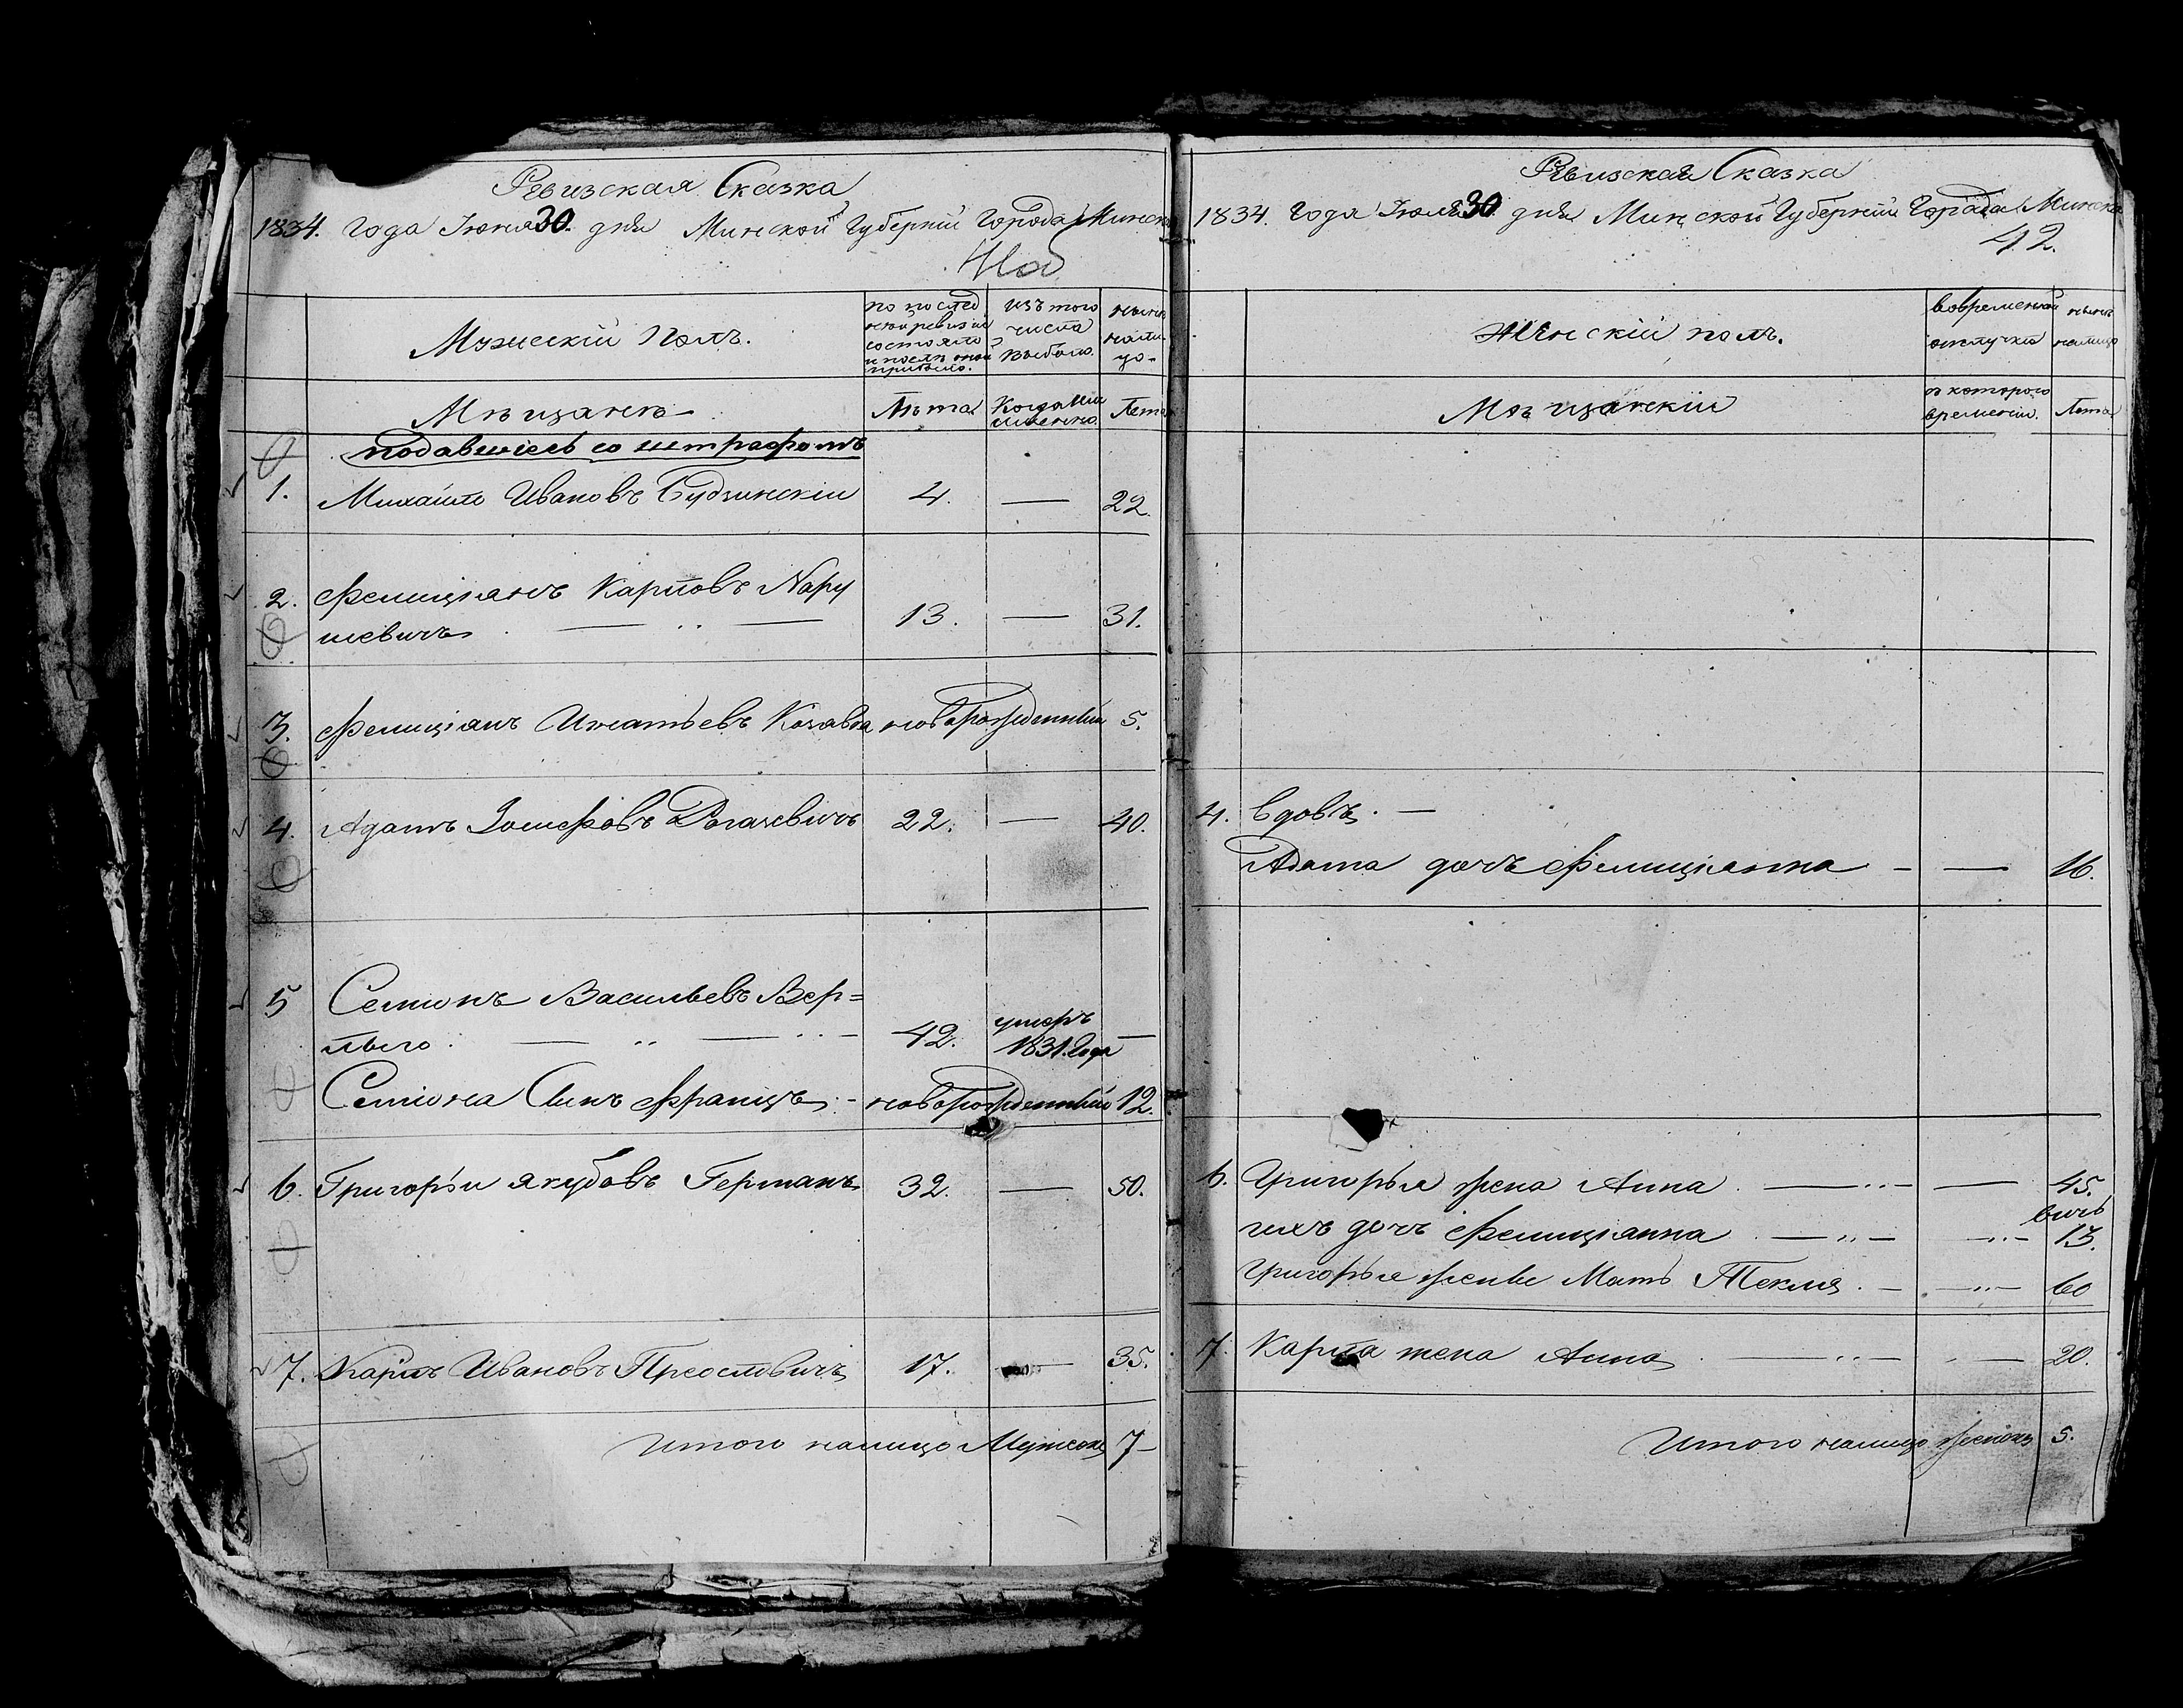 Ревизская Сказка
1834. Года Іюня 30. дня Минской Губерніи Города Минска
Мужескій Полъ.
по послед
ней ревизіи
состояло
и послѣ оной
прибыло.
изъ того
числа
выбыло.
нынѣ
на ли
цо
Мѣщане
Лѣта
Когда имянно
Лета
подавшіесь со штрафомъ
1. Михайло Ивановъ Будзинскій 4. — 22.
2. Фелиціянъ Карповъ Нару
шевичъ — 13. — 31.
3. Фелиціанъ Игнатьевъ новорожденный 5.
4. Адамъ Іосифовъ 22. — 40.
5 Семіонъ Васильевъ Вер=
42. умеръ 1831. Года —
Семіона Сынъ Францъ - новорожденный 12.
6. Григорій Якубовъ Германъ 32. — 50.
7. Карлъ Ивановъ 17. — 35.
Итого налицо Мужеска 7-
Ревизская Сказка
1834. Года Іюня 30. дня Минской Губерніи Города Минска
42.
Женскій полъ.
во временной
отлучке
нынѣ
налицо
Мѣщанскій
съ которого
времени.
Лета
4. Вдовъ. —
Адама дочь Фелиціанна - — 16.
6. Григорья жена Анна — — 45.
ихъ дочь Фелиціанна — — 13.
Григорья жены Мать Текля. — — 60
7. Карла жена Анна — — 20.
Итого налицо женска 5.